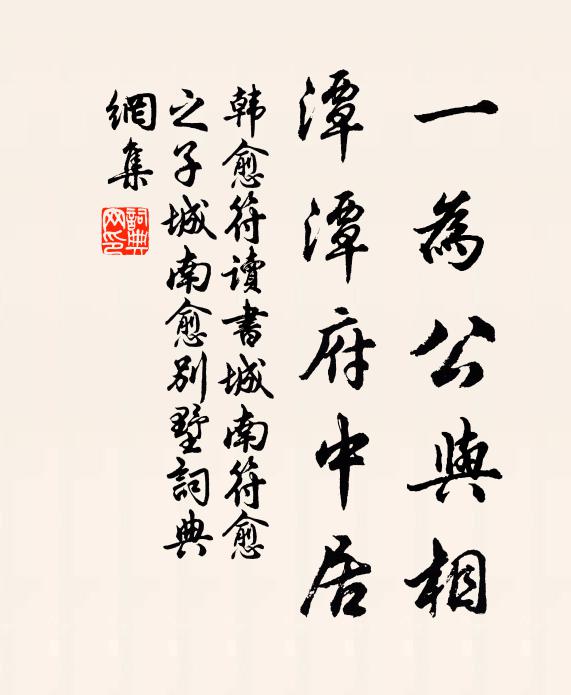 一為公與相
潭潭府中居
韩愈符讀書城南符愈
之子城南愈別墅詞典
網集
詞典
网印